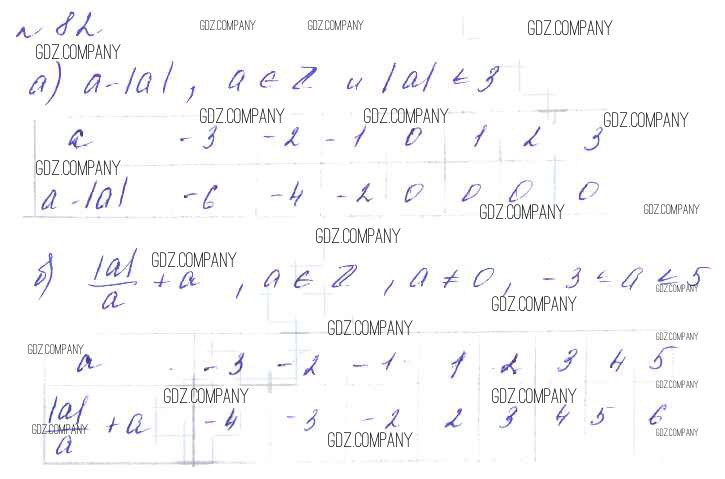 № 82 GDZ.COMPANY GDZ.COMPANY GDZ.COMPANY
GDZ.COMPANY
а) a-|a|, a ∈ Z и |a| ≤ 3
GDZ.COMPANY GDZ.COMPANY GDZ.COMPANY
a -3 -2 -1 0 1 2 3
GDZ.COMPANY
a-|a| -6 -4 -2 0 0 0 0
GDZ.COMPANY GDZ.COMPANY
GDZ.COMPANY
GDZ.COMPANY
б) |a|/a + a, a ∈ Z, a ≠ 0, -3 ≤ a ≤ 5
GDZ.COMPANY GDZ.COMPANY
GDZ.COMPANY GDZ.COMPANY
GDZ.COMPANY
a -3 -2 -1 1 2 3 4 5
GDZ.COMPANY GDZ.COMPANY GDZ.COMPANY
|a|/a + a -4 -3 -2 2 3 4 5 6
GDZ.COMPANY GDZ.COMPANY GDZ.COMPANY